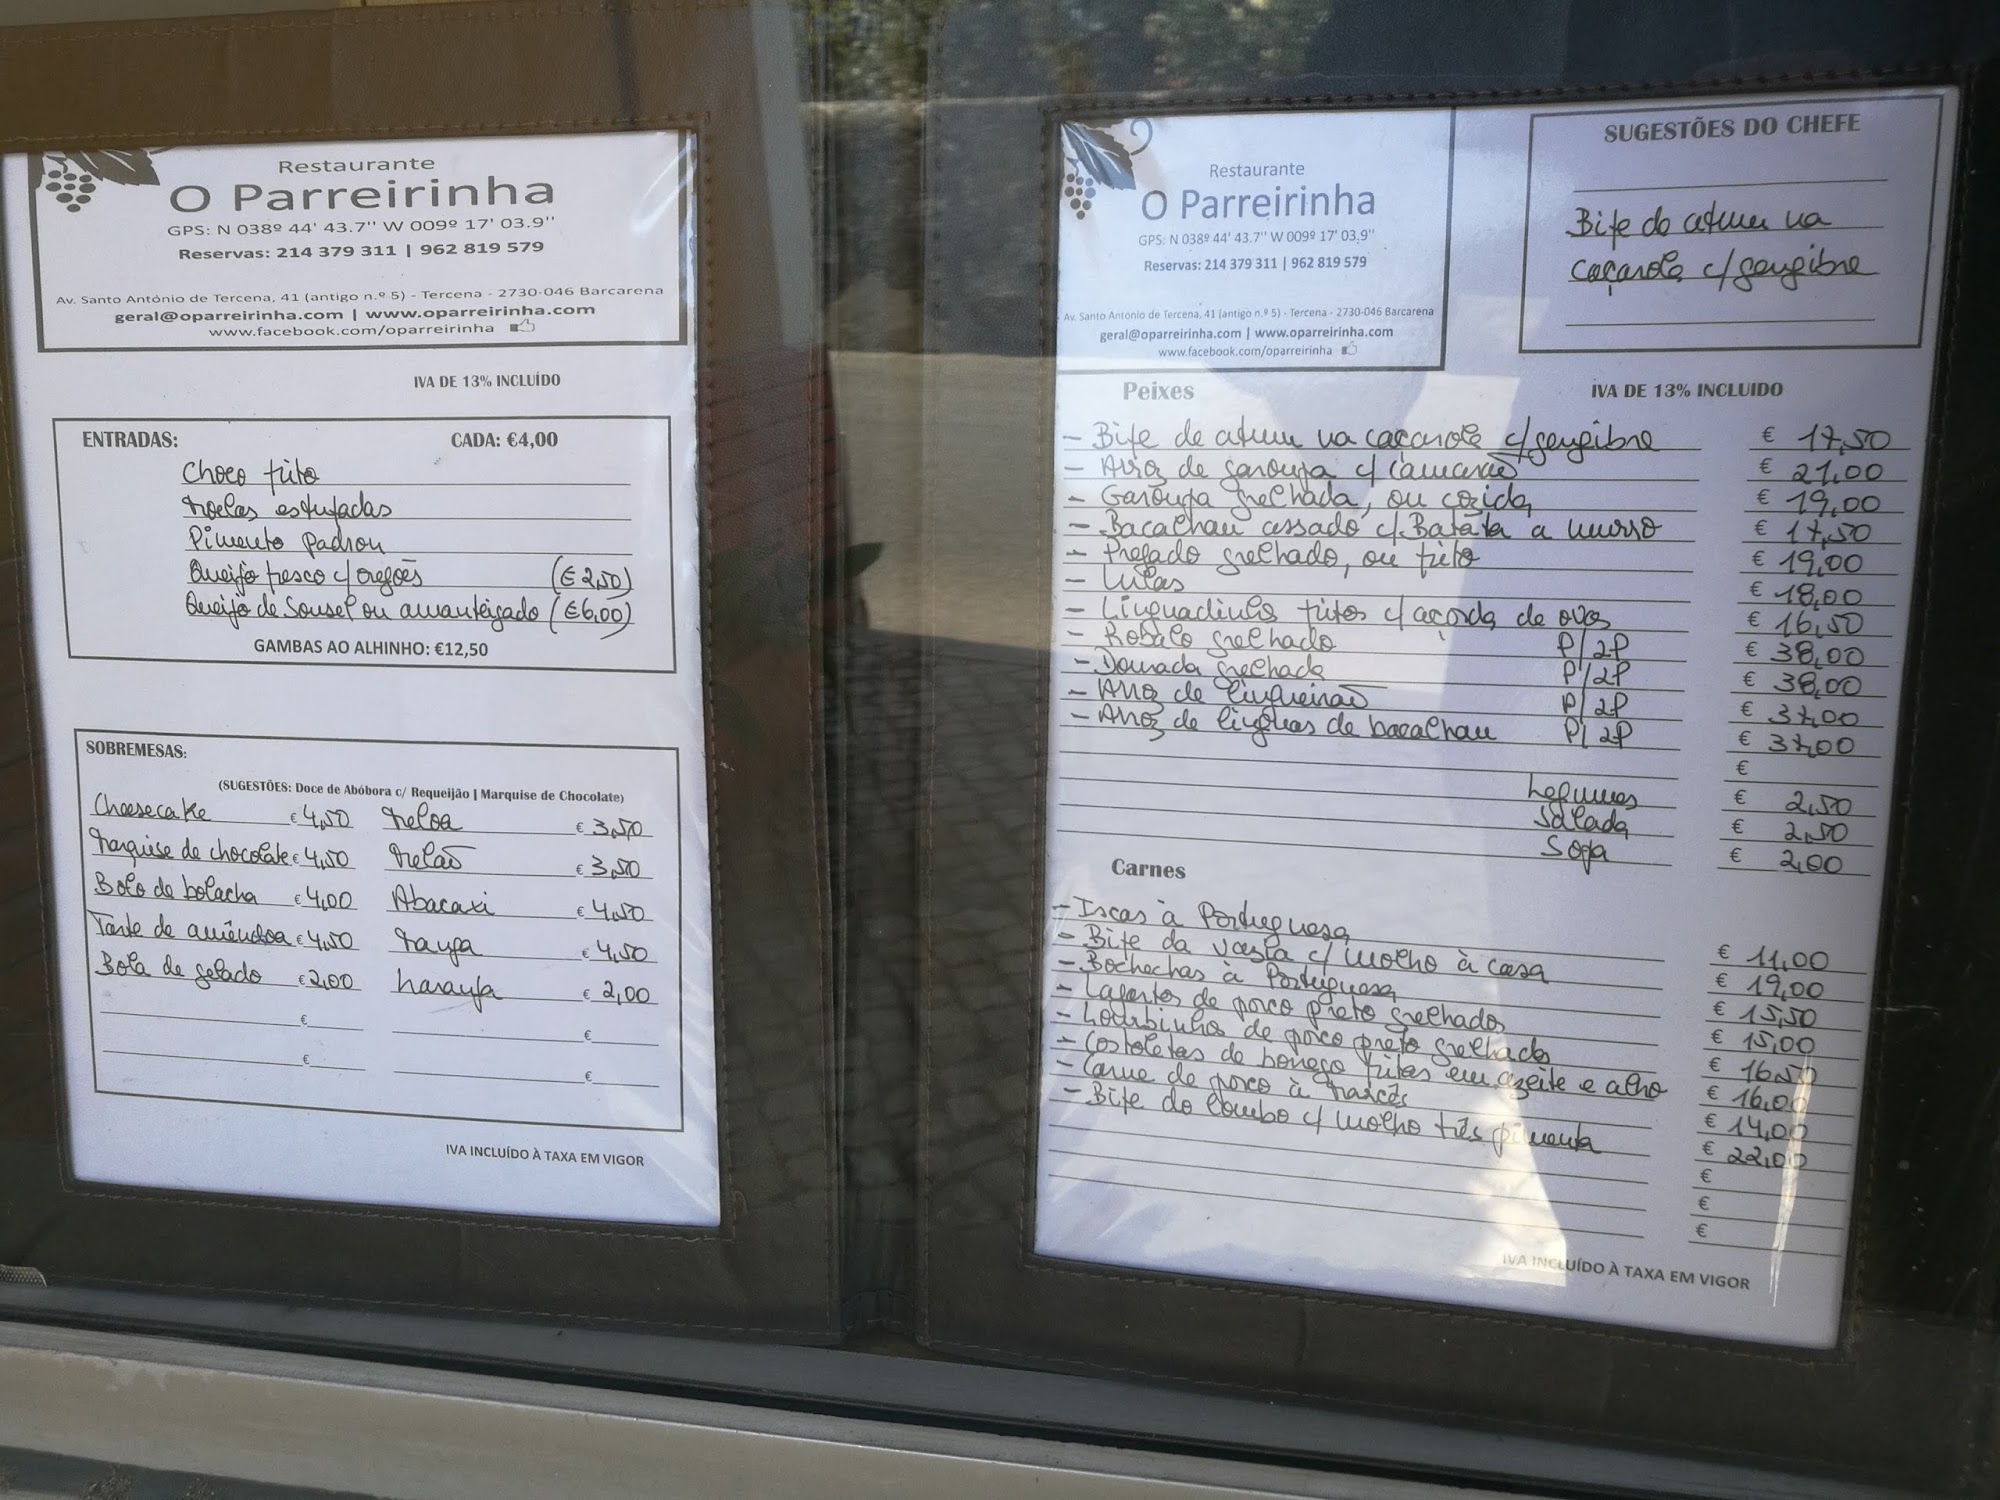 Restaurante
O Parreirinha
GPS: N 038º 44' 43.7'' W 009º 17' 03.9''
Reservas: 214 379 311 | 962 819 579
Av. Santo António de Tercena, 41 (antigo n.º 5) - Tercena - 2730-046 Barcarena
geral@oparreirinha.com | www.oparreirinha.com
www.facebook.com/oparreirinha
IVA DE 13% INCLUÍDO
ENTRADAS: CADA: €4,00
Choco frito
Moelas estufadas
Pimento padron
Queijo fresco c/oregãos (€2,50)
Queijo de Sousel ou amanteigado (€6,00)
GAMBAS AO ALHINHO: €12,50
SOBREMESAS:
(SUGESTÕES: Doce de Abóbora c/ Requeijão | Marquise de Chocolate)
Cheesecake € 4,50 Meloa € 3,50
Marquise de chocolate € 4,50 Melão € 3,50
Bolo de bolacha € 4,00 Abacaxi € 4,50
Tarte de amêndoa € 4,50 Manga € 4,50
Bola de gelado € 2,00 Laranja € 2,00
€ €
€ €
IVA INCLUÍDO À TAXA EM VIGOR
Restaurante
O Parreirinha
GPS: N 038º 44' 43.7'' W 009º 17' 03.9''
Reservas: 214 379 311 | 962 819 579
Av. Santo António de Tercena, 41 (antigo n.º 5) - Tercena - 2730-046 Barcarena
geral@oparreirinha.com | www.oparreirinha.com
www.facebook.com/oparreirinha
SUGESTÕES DO CHEFE
Bife de atum na
caçarola c/gengibre
Peixes IVA DE 13% INCLUIDO
- Bife de atum na caçarola c/gengibre € 17,50
- Arroz de garoupa c/camarão € 21,00
- Garoupa grelhada, ou cozida € 19,00
- Bacalhau assado c/Batata a murro € 17,50
- Pregado grelhado, ou frito € 19,00
- Lulas € 18,00
- Linguadinhos fritos c/açorda de ovas € 16,50
- Robalo grelhado P/2P € 38,00
- Dourada grelhada P/2P € 38,00
- Arroz de lingueirão P/2P € 37,00
- Arroz de línguas de bacalhau P/2P € 37,00
€
Legumes € 2,50
Salada € 2,50
Sopa € 2,00
Carnes
- Iscas à Portuguesa € 11,00
- Bife da vazia c/molho à casa € 19,00
- Bochechas à Portuguesa € 15,50
- Lagartos de porco preto grelhados € 15,00
- Lombinhos de porco preto grelhado € 16,50
- Costoletas de borrego fritas em azeite e alho € 16,00
- Carne de porco à Narcês € 14,00
- Bife do lombo c/molho três pimenta € 22,00
€
€
€
IVA INCLUÍDO À TAXA EM VIGOR